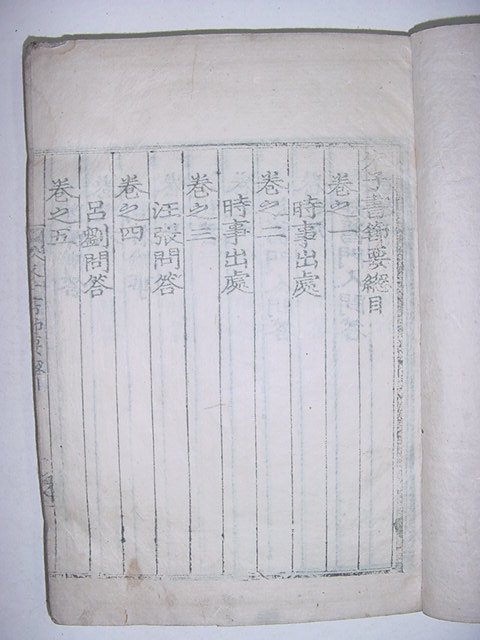 朱子書節要總目
卷之一
時事出處
卷之二
時事出處
卷之三
汪張問答
卷之四
呂劉問答
卷之五